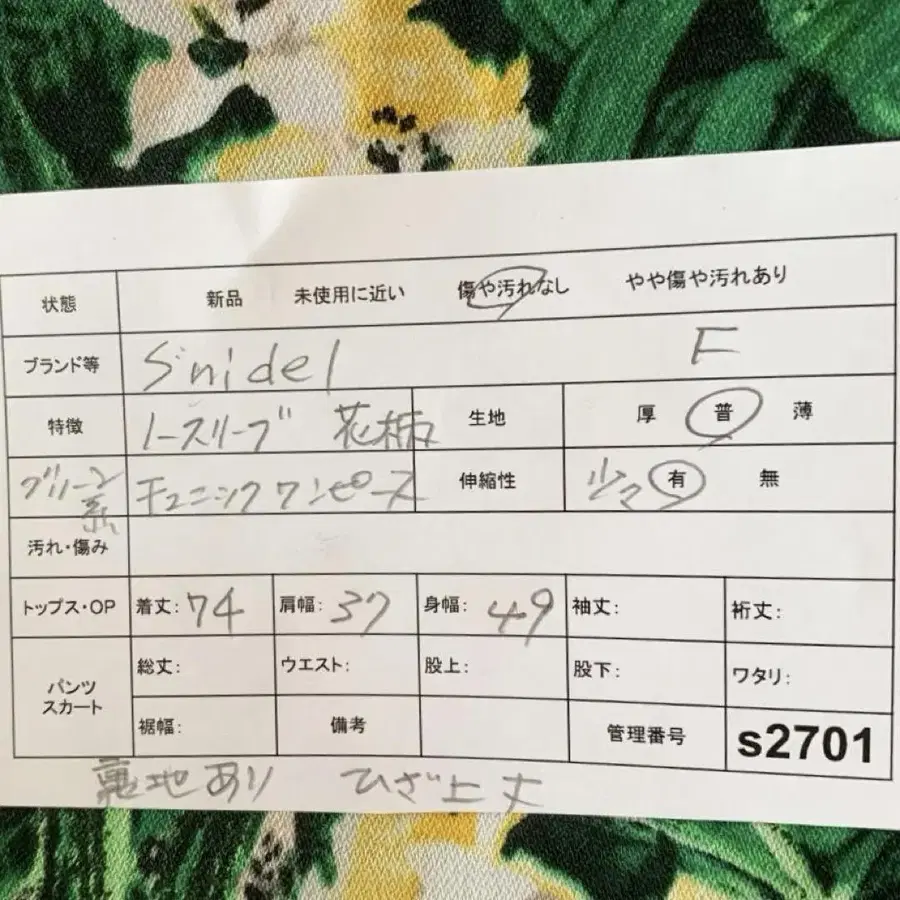 状態 新品 未使用に近い 傷や汚れなし やや傷や汚れあり
ブランド等 Snidel F
特徴 ノースリーブ 花柄 生地 厚 普 薄
グリーン系 チュニックワンピース 伸縮性 少々 有 無
汚れ・傷み
トップス・OP 着丈: 74 肩幅: 37 身幅: 49 袖丈: 裄丈:
パンツ スカート 総丈: ウエスト: 股上: 股下: ワタリ:
裾幅: 備考 管理番号 s2701
裏地あり ひざ上丈